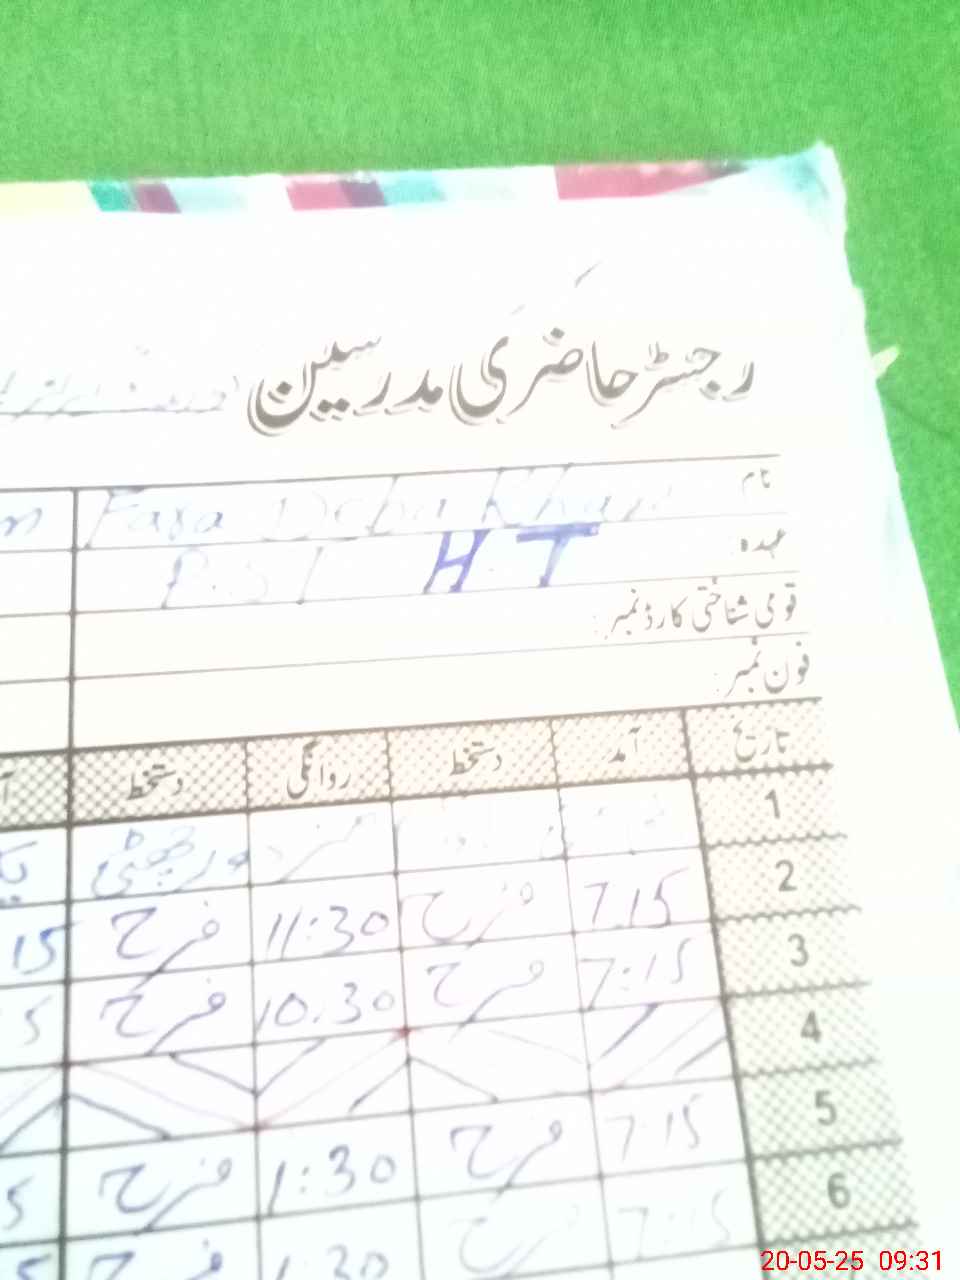 رجسٹر حاضری مدرسین
نام Fara Deba Khan
عہدہ: P.ST H.T
قومی شناختی کارڈ نمبر:
فون نمبر:
تاریخ آمد دستخط روانگی دستخط
1
2 7.15 فرح 11:30 فرح 15
3 7:15 فرح 10.30 فرح 5
4
5 7.15 فرح 1:30 فرح 5
6 7:15 فرح 1:30 فرح 5
20-05-25 09:31